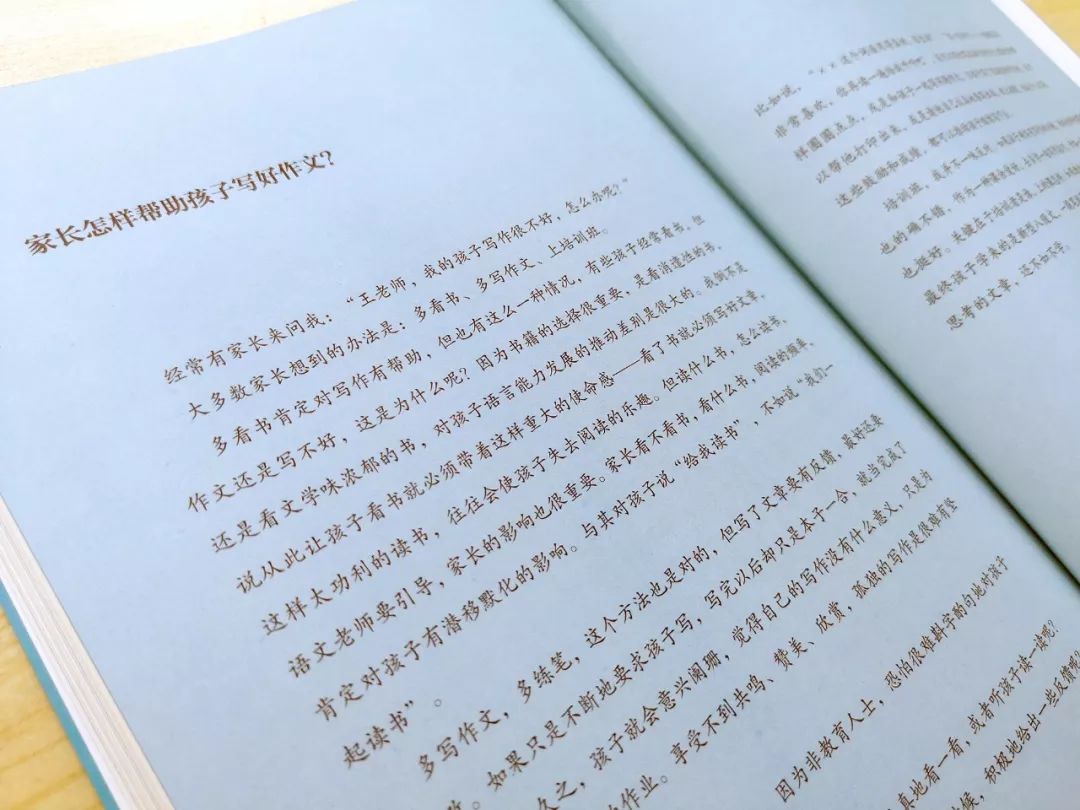 家长怎样帮助孩子写好作文?
经常有家长来问我:“王老师,我的孩子写作很不好,怎么办呢?”
大多数家长想到的办法是:多看书、多写作文、上培训班。
多看书肯定对写作有帮助,但也有这么一种情况,有些孩子经常看书,但
作文还是写不好,这是为什么呢?因为书籍的选择很重要,是看消遣性的书,
还是看文学味浓郁的书,对孩子语言能力发展的推动差别是很大的。我倒不是
说从此让孩子看书就必须带着这样重大的使命感——看了书就必须写好文章,
这样太功利的读书,往往会使孩子失去阅读的乐趣。但读什么书,怎么读书,
语文老师要引导,家长的影响也很重要。家长看不看书,看什么书,阅读的频率,
肯定对孩子有潜移默化的影响。与其对孩子说“给我读书”,不如说“我们一
起读书”。
多写作文,多练笔,这个方法也是对的,但写了文章要有反馈,最好还要
。如果只是不断地要求孩子写,写完以后却只是本子一合,就当完成了
久之,孩子就会意兴阑珊,觉得自己的写作没有什么意义,只是为
作业。享受不到共鸣、赞美、欣赏,孤独的写作是很难有坚
因为非教育人士,恐怕很难斟字酌句地对孩子
真地看一看,或者听孩子读一读呢?
候,积极地给出一些反馈呢?
比如说,“××这个词
非常喜欢,你再看一遍
样圈圈点点,或是和孩子一起
以帮他打印出来,或是
这些鼓励和成绩,都可以
培训班,我并不一味反对,
也的确不错,作为一种
也挺好。关键在于培训
最终孩子学来的是
思考的文章,还不如不学。